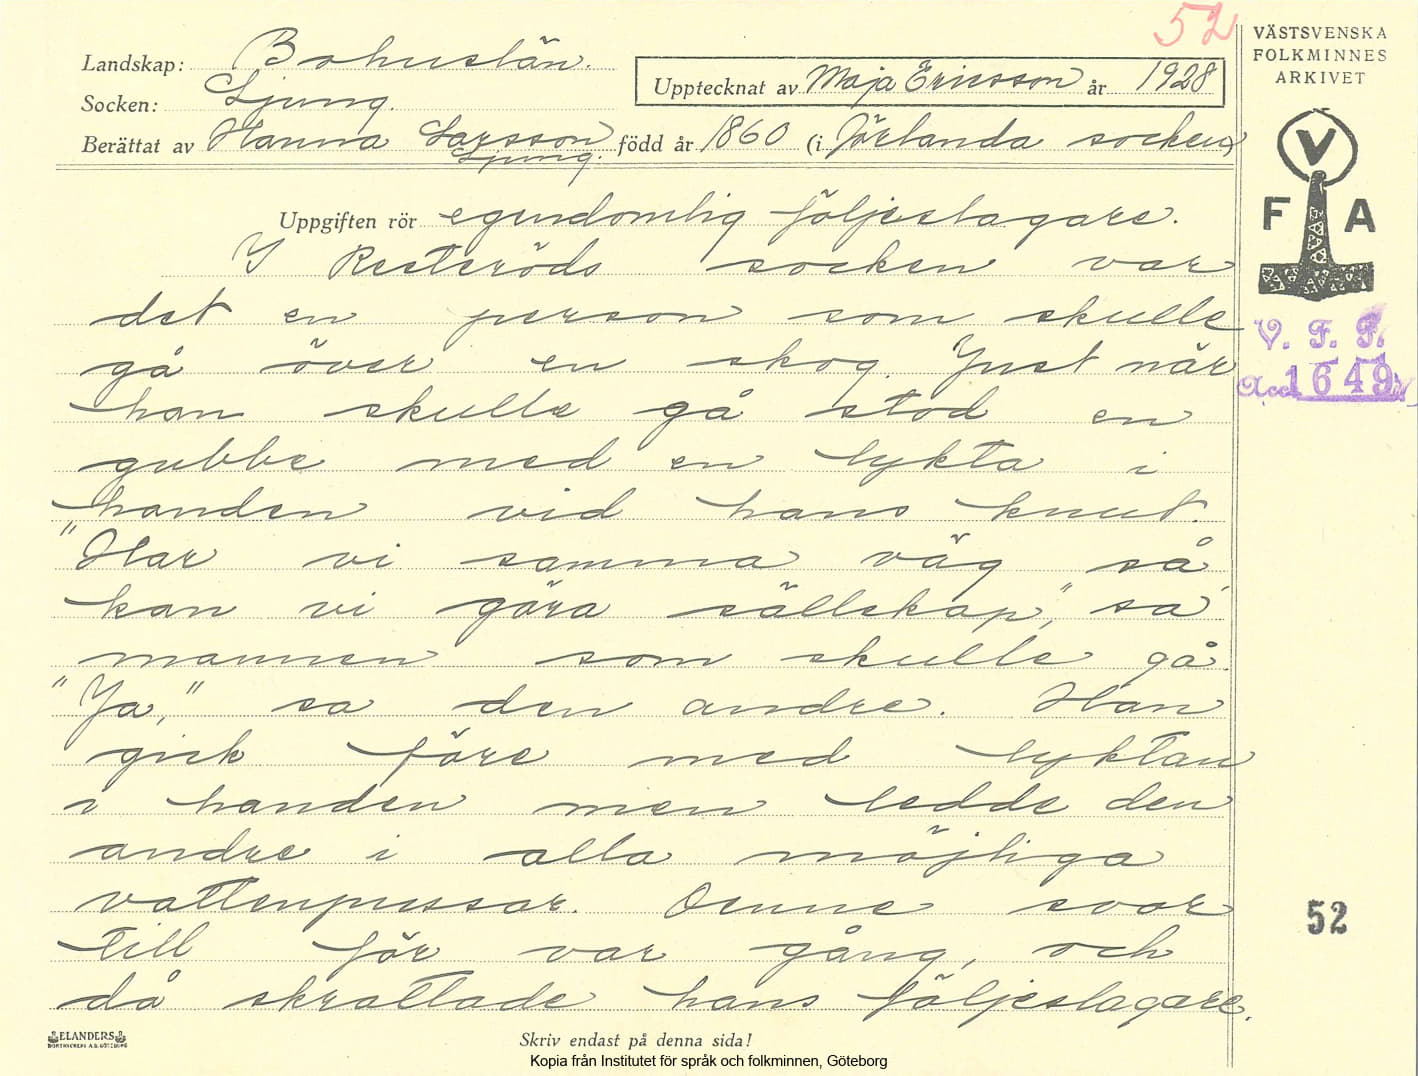 52
VÄSTSVENSKA
FOLKMINNES
ARKIVET
Landskap: Bohuslän.
Socken: Ljung.
Upptecknat av Maja Ericsson år 1928
Berättat av Hanna Larsson född år 1860 (i Jörlanda socken)
Ljung.
V
F A
V. F. F.
Acc. 1649
Uppgiften rör egendomlig följeslagare.
I Resteröds socken var
det en person som skulle
gå över en skog. Just når
han skulle gå stod en
gubbe med en lykta i
handen vid hans knut.
"Har vi samma väg så
kan vi göra sällskap", sa
mannen som skulle gå.
"Ja," sa den andre. Han
gick före med lyktan
i handen men ledde den
andre i alla möjliga
vattenpussar. Denne svor
till för var gång, och
då skrattade hans följeslagare.
52
ELANDERS
BOKTRYCKERI A.B. GÖTEBORG
Skriv endast på denna sida!
Kopia från Institutet för språk och folkminnen, Göteborg